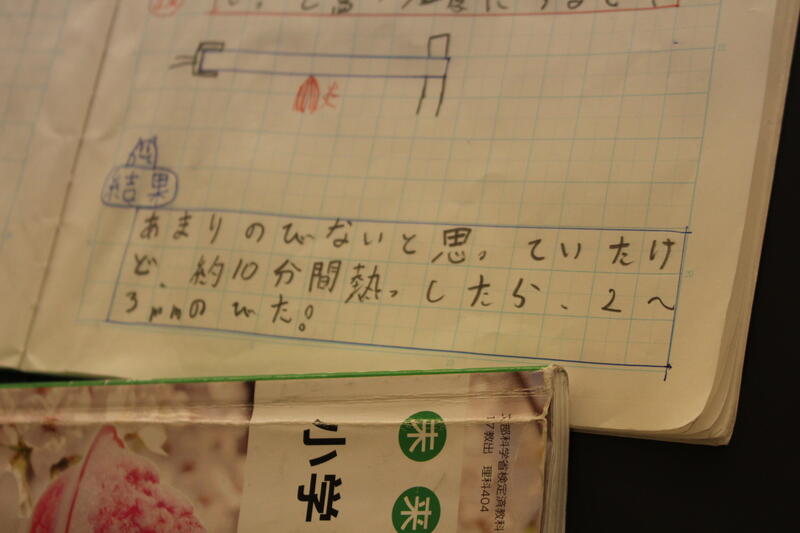 火
結果
あまりのびないと思っていたけ
ど、約10分間熱っしたら、2〜
3mmのびた。
小学
未来
文部科学省検定済教科
17教出 理科404